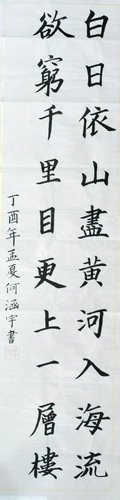 白日依山盡黃河入海流
欲窮千里目更上一層樓
丁酉年孟夏何涵宇書